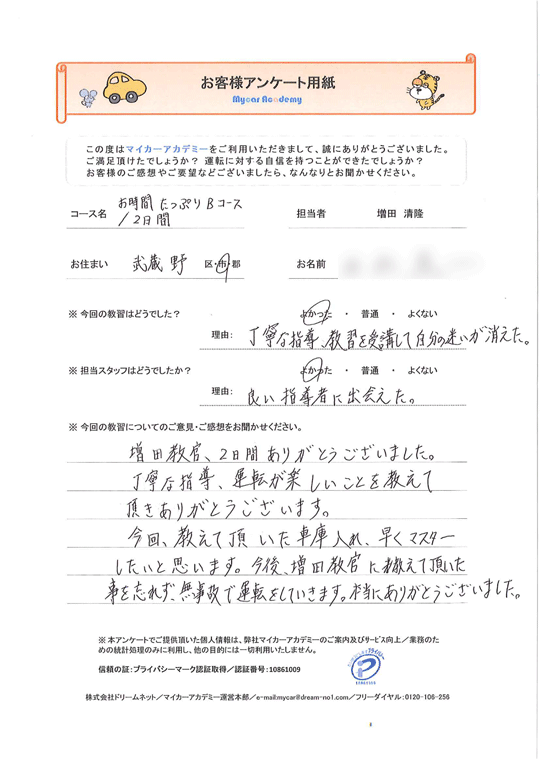 お客様アンケート用紙
Mycar Academy
この度はマイカーアカデミーをご利用いただきまして、誠にありがとうございました。
ご満足頂けたでしょうか？ 運転に対する自信を持つことができたでしょうか？
お客様のご感想やご要望などございましたら、なんなりとお聞かせください。
コース名 お時間たっぷりBコース
/12日間
担当者 増田 清隆
お住まい 武蔵野 区・市・郡
お名前
※ 今回の教習はどうでした？ よかった ・ 普通 ・ よくない
理由: 丁寧な指導、教習を受講して自分の迷いが消えた。
※ 担当スタッフはどうでしたか？ よかった ・ 普通 ・ よくない
理由: 良い指導者に出会えた。
※ 今回の教習についてのご意見・ご感想をお聞かせください。
増田教官、2日間ありがとうございました。
丁寧な指導、運転が楽しいことを教えて
頂きありがとうございます。
今回、教えて頂いた車庫入れ、早くマスター
したいと思います。今後、増田教官に教えて頂いた
事を忘れず、無事故で運転をしていきます。本当にありがとうございました。
※ 本アンケートでご提供頂いた個人情報は、弊社マイカーアカデミーのご案内及びサービス向上／業務のた
めの統計処理のみに利用し、他の目的には一切利用いたしません。
信頼の証：プライバシーマーク認証取得／認証番号：10861009
株式会社ドリームネット／マイカーアカデミー運営本部／e-mail:mycar@dream-no1.com／フリーダイヤル：0120-106-256